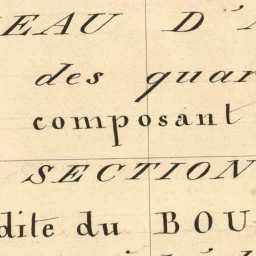 EAU D'
des quar
composant
SECTION
dite du BOU